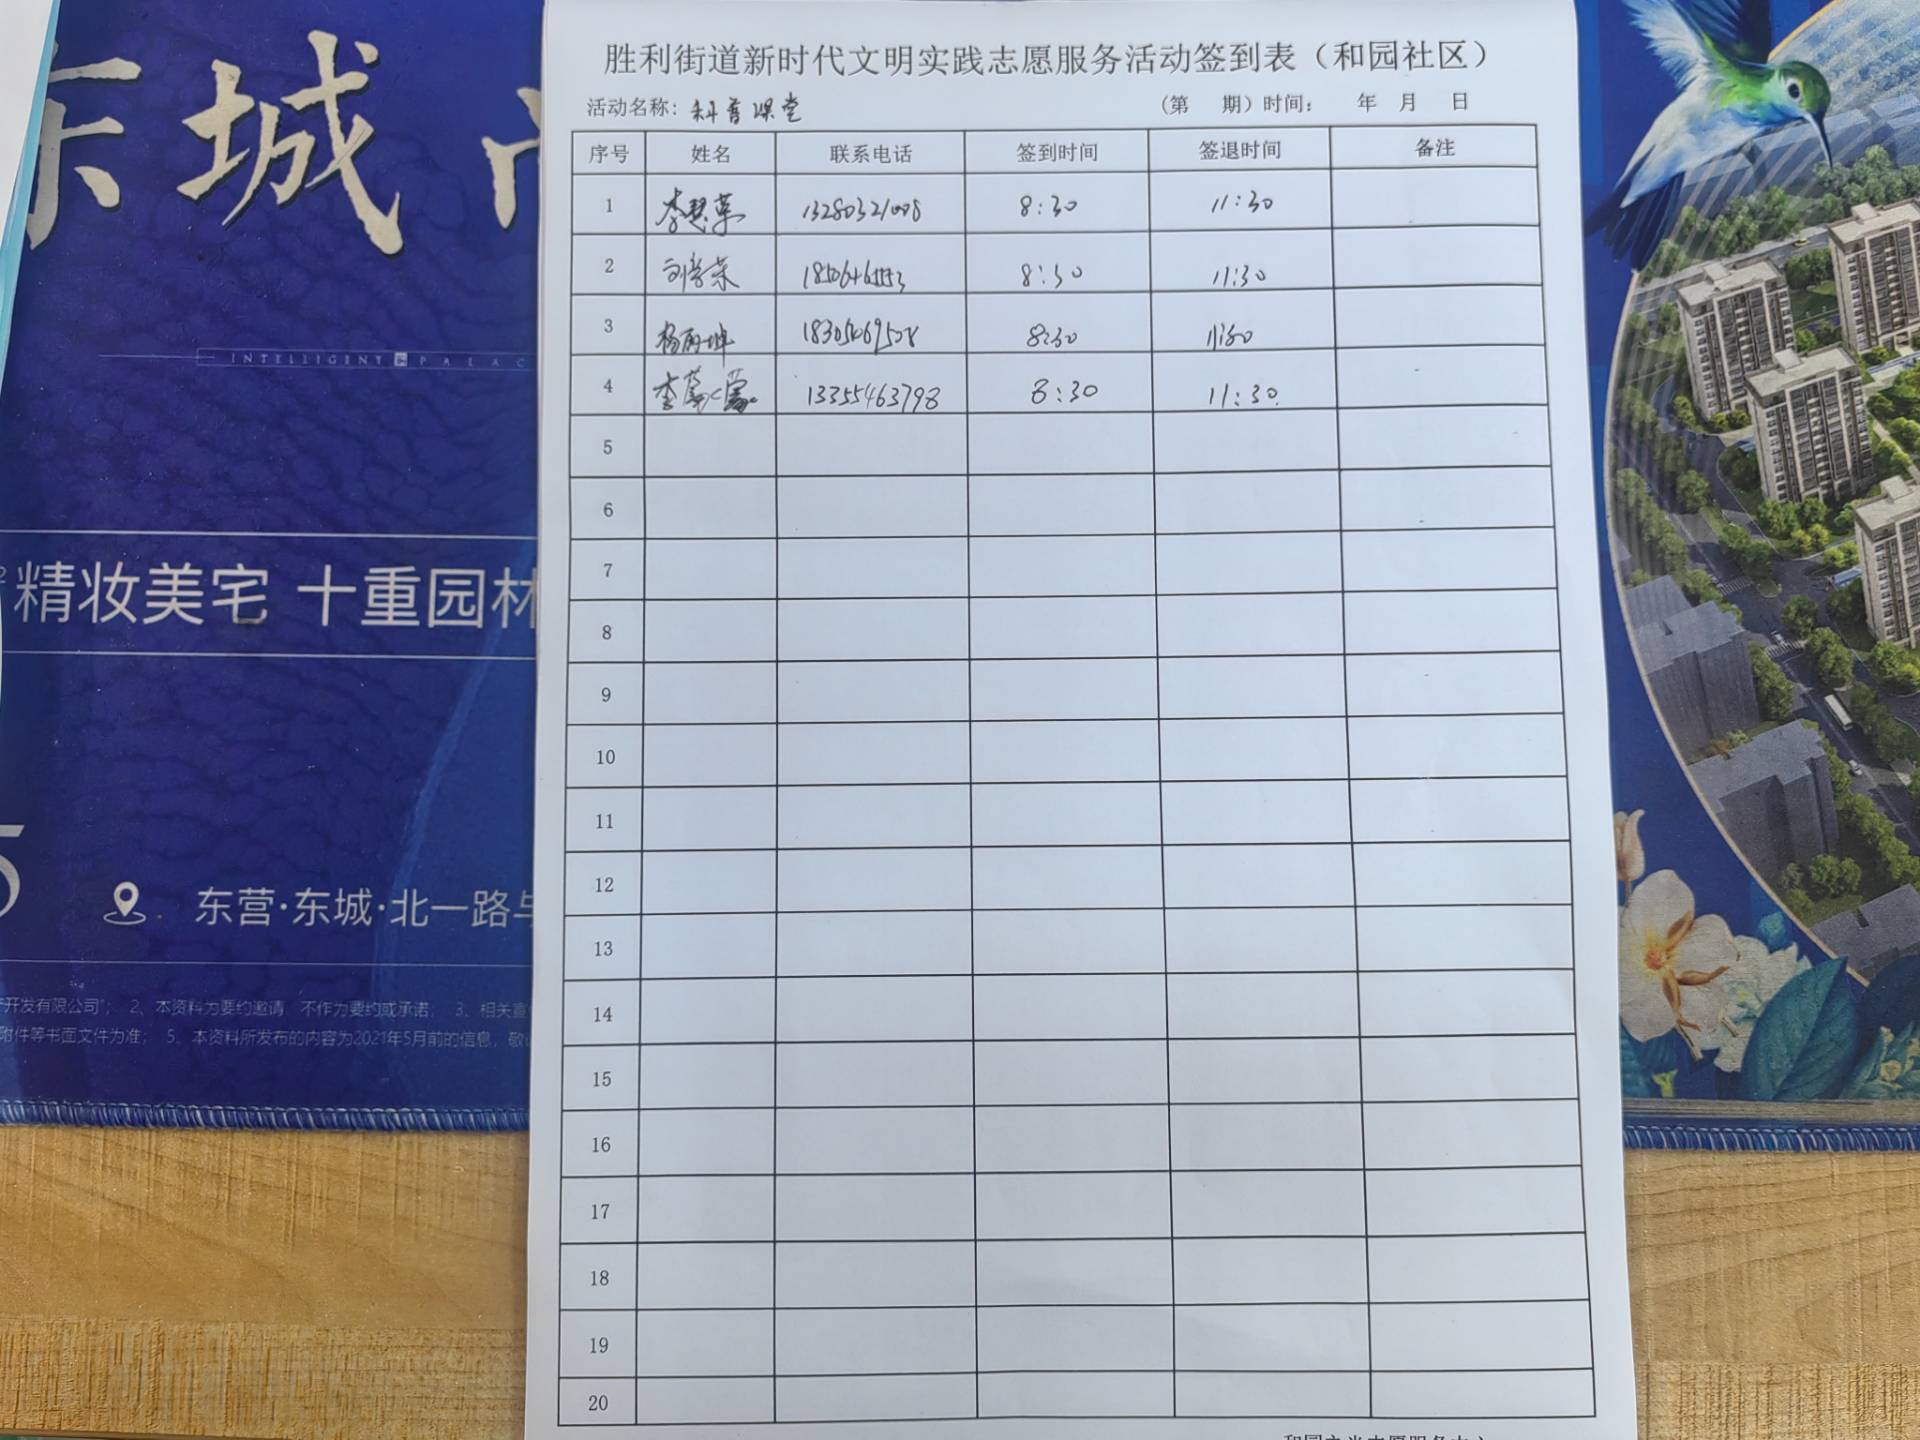 胜利街道新时代文明实践志愿服务活动签到表（和园社区）
活动名称：科普课堂 （第 期）时间： 年 月 日
序号 姓名 联系电话 签到时间 签退时间 备注
1 李慧革 13280321008 8:30 11:30
2 8:30 11:30
3 杨丽坤 18305469508 8:30 11:30
4 李蒙蒙 13355463798 8:30 11:30
5
6
7
8
9
10
11
12
13
14
15
16
17
18
19
20
东城
INTELLIGENT PALAC
精妆美宅 十重园林
5
东营·东城·北一路与
开发有限公司"； 2、本资料为要约邀请 不作为要约或承诺； 3、相关宣
附件等书面文件为准； 5、本资料所发布的内容为2021年5月前的信息，敬